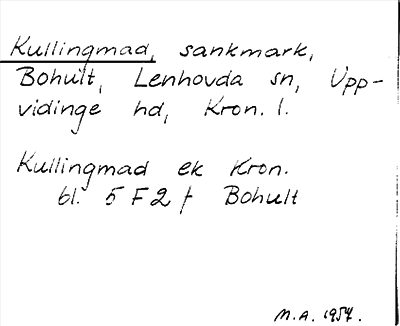 Kullingmad, sankmark,
Bohult, Lenhovda sn, Upp-
vidinge hd, Kron. l.
Kullingmad ek Kron.
bl. 5 F 2 f Bohult
M.A. 1957.